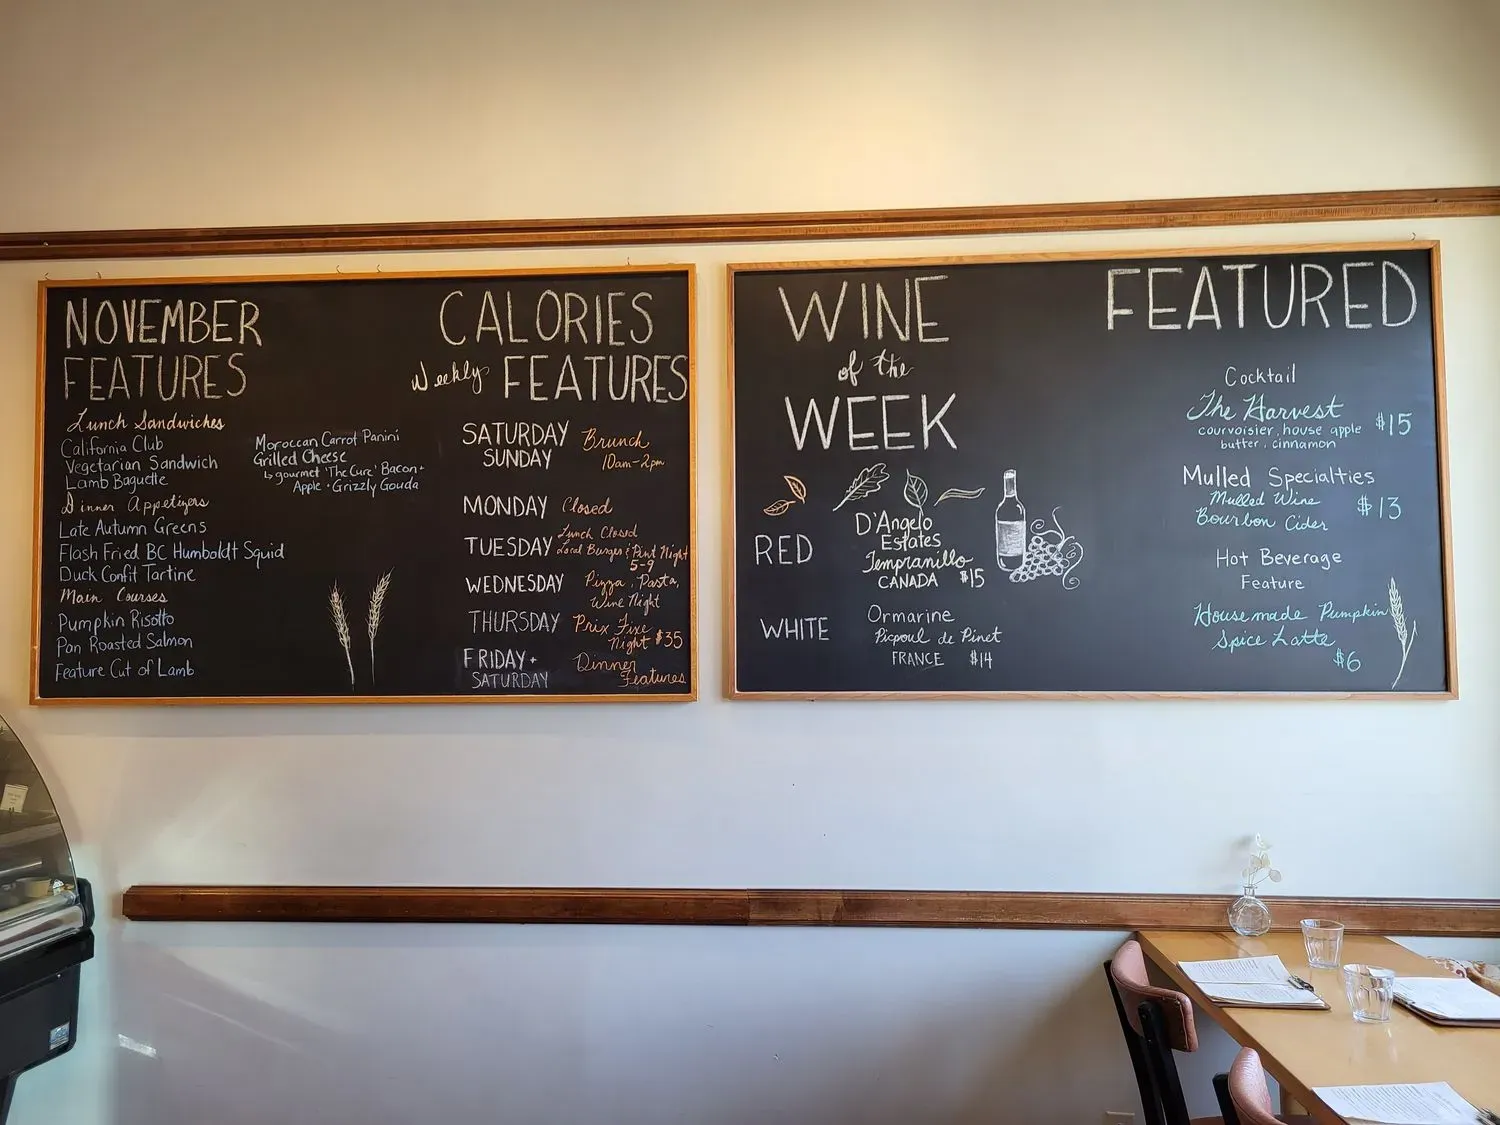 NOVEMBER
FEATURES
Lunch Sandwiches
California Club
Vegetarian Sandwich
Lamb Baguette
Moroccan Carrot Panini
Grilled Cheese
↳ gourmet 'The Cure' Bacon +
Apple + Grizzly Gouda
Dinner Appetizers
Late Autumn Greens
Flash Fried BC Humboldt Squid
Duck Confit Tartine
Main Courses
Pumpkin Risotto
Pan Roasted Salmon
Feature Cut of Lamb
CALORIES
Weekly FEATURES
SATURDAY Brunch
SUNDAY 10am-2pm
MONDAY Closed
TUESDAY Lunch Closed
Local Burger & Pint Night
5-9
WEDNESDAY Pizza, Pasta,
Wine Night
THURSDAY Prix Fixe
Night $35
FRIDAY + Dinner
SATURDAY Features
WINE
of the
WEEK
RED
D'Angelo
Estates
Tempranillo
CANADA $15
WHITE
Ormarine
Picpoul de Pinet
FRANCE $14
FEATURED
Cocktail
The Harvest $15
courvoisier, house apple
butter, cinnamon
Mulled Specialties
Mulled Wine $13
Bourbon Cider
Hot Beverage
Feature
Housemade Pumpkin
Spice Latte
$6